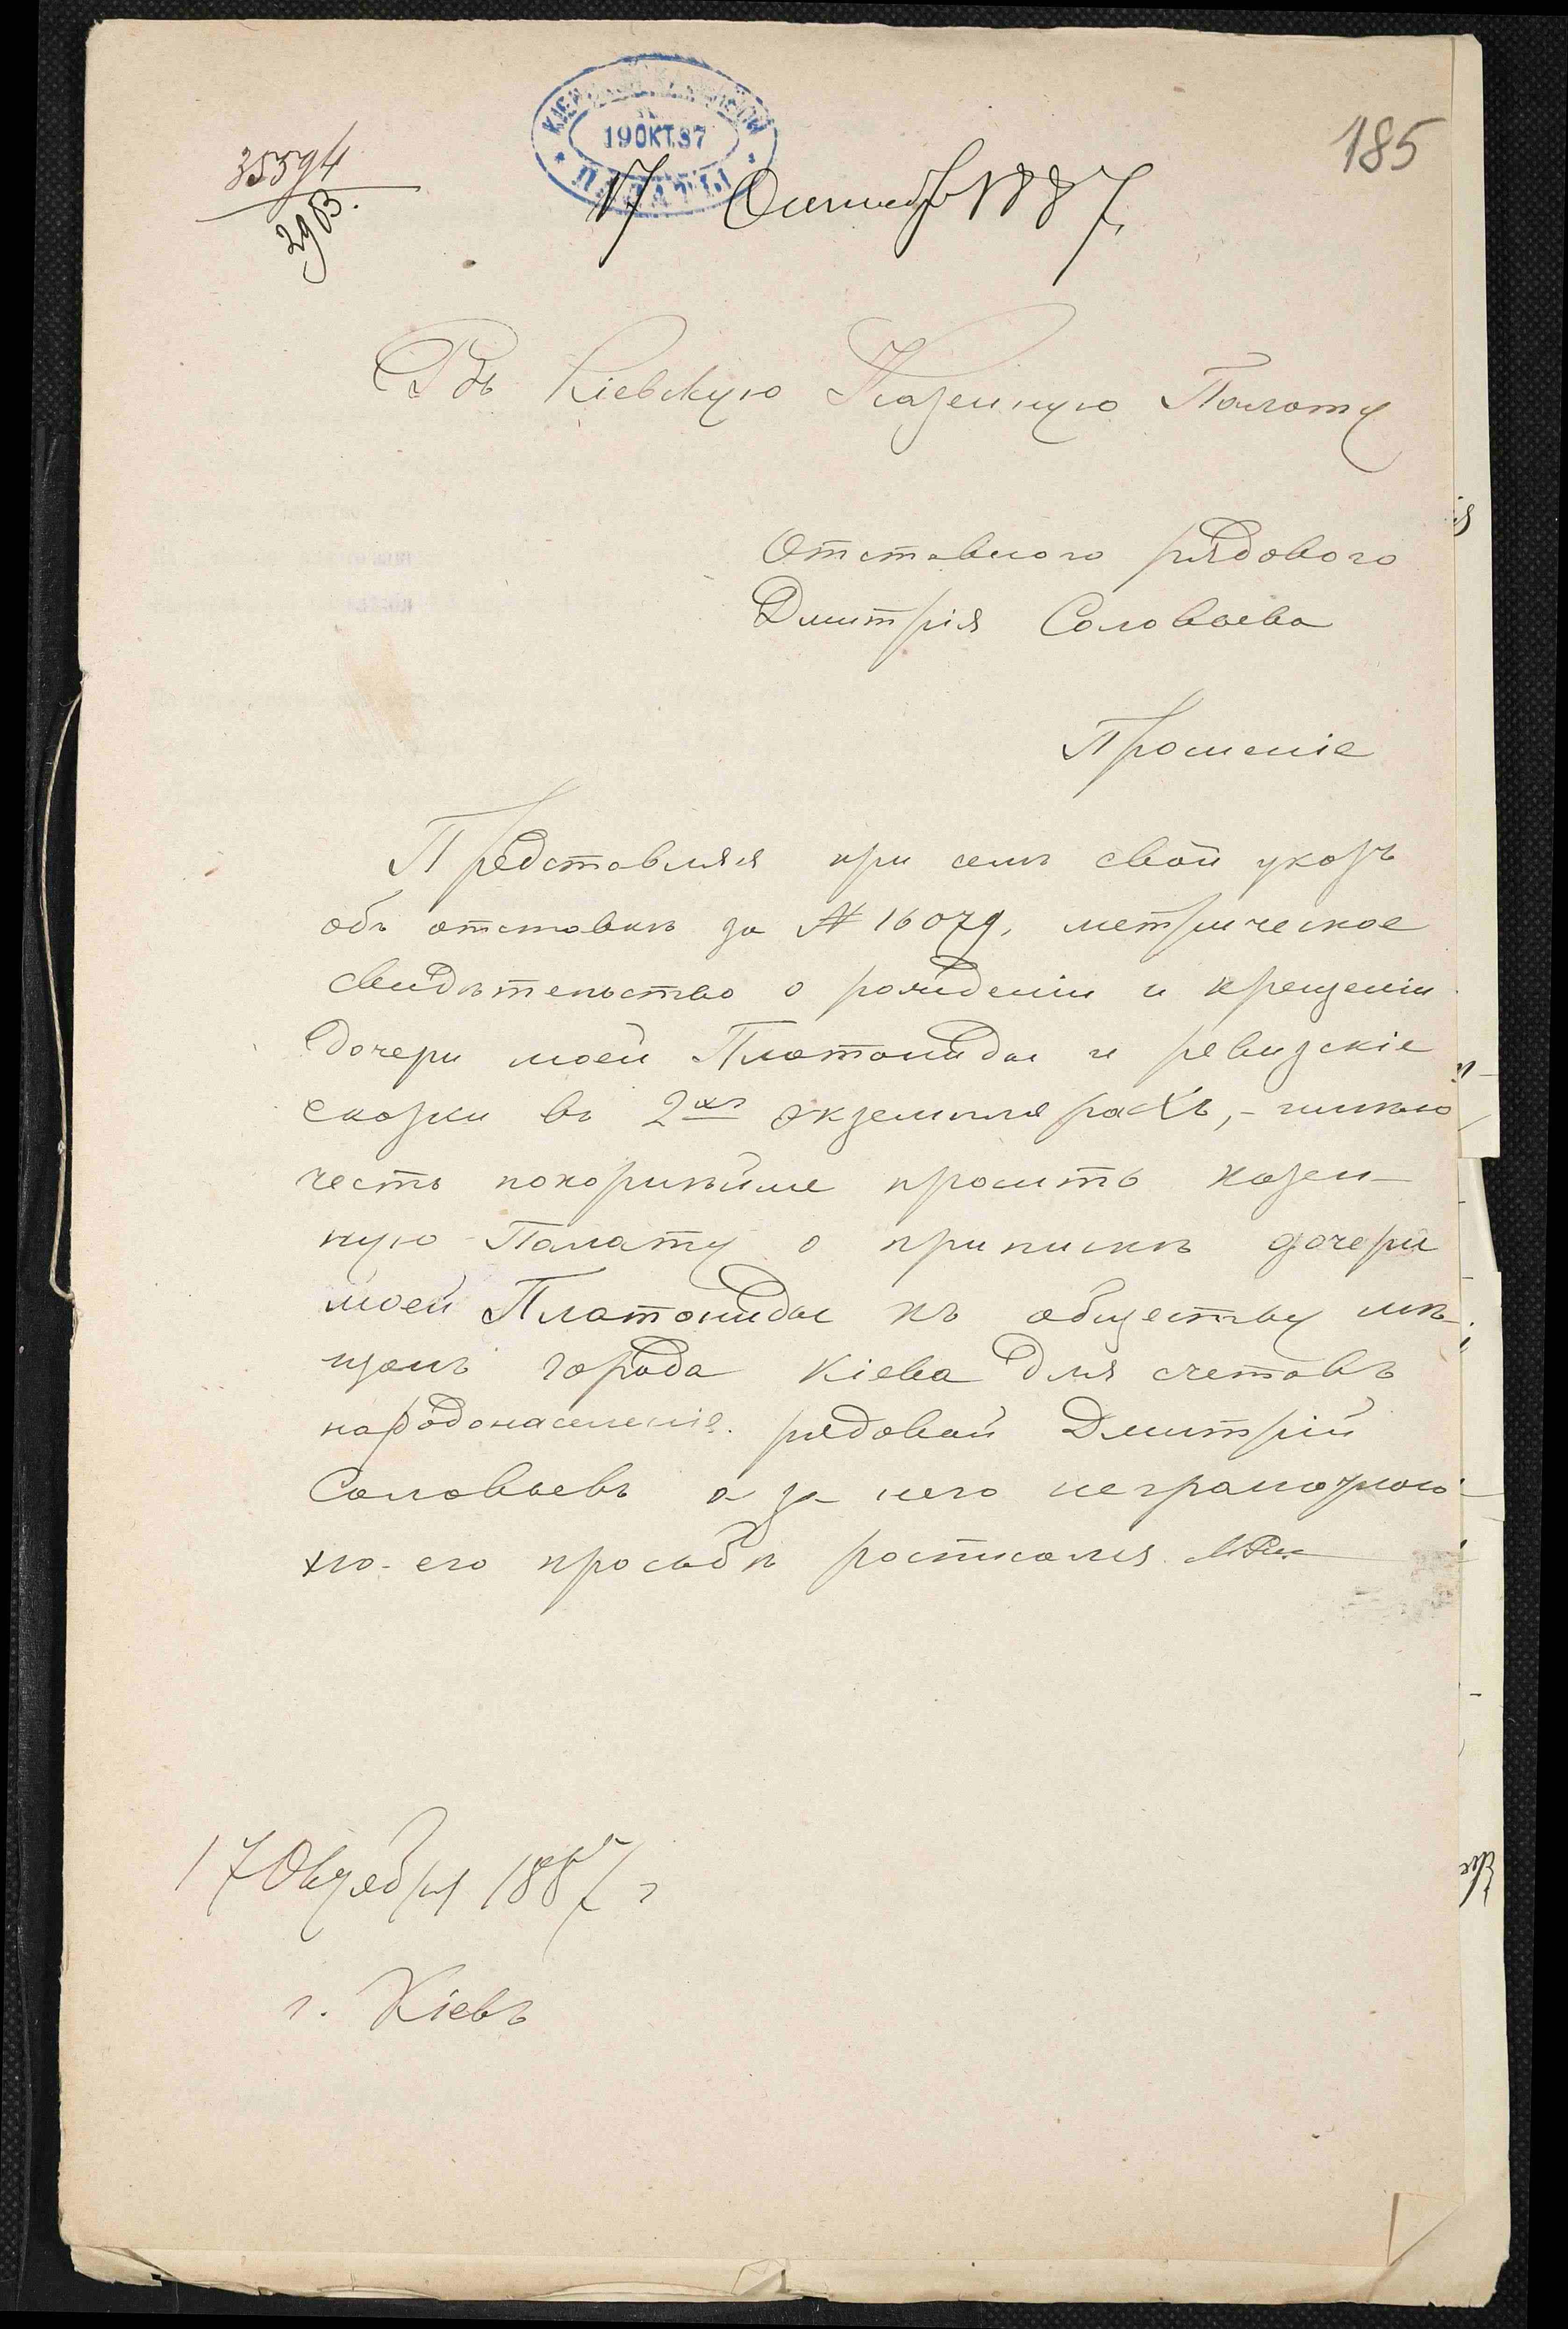 185
35594
КІЕВСКОЙ КАЗЕННОЙ
19 ОКТ. 87
ПАЛАТЫ
17 Октября 1887
Въ Кіевскую Казенную Палату
Отставного рядового
Дмитрія Соловьева
Прошеніе
Представляя при семъ свой указъ
объ отставкѣ за № 16079, метрическое
свидѣтельство о рожденіи и крещеніи
дочери моей Платониды и ревизскіе
сказки въ 2хъ экземплярахъ, - имѣю
честь покорнѣйше просить казен-
ную Палату о припискѣ дочери
моей Платониды къ обществу мѣ-
щанъ города Кіева для счетовъ
народонаселенія. рядовой Дмитрій
Соловьевъ а за него неграмотного
по его просьбѣ расписался
17 Октября 1887 г
г. Кіевъ